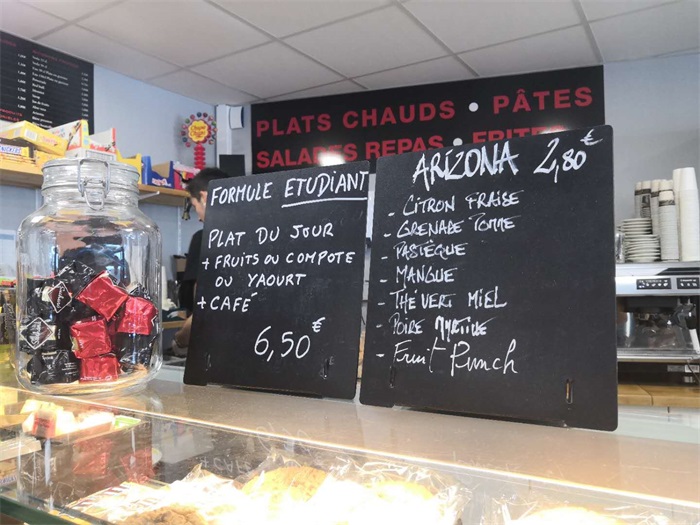 PLATS CHAUDS • PÂTES
SALADES REPAS • FRITES
FORMULE ETUDIANT
PLAT DU JOUR
+ FRUITS OU COMPOTE
OU YAOURT
+ CAFÉ
6,50 €
ARIZONA 2,80 €
- CITRON FRAISE
- GRENADE POMME
- PASTÈQUE
- MANGUE
- THE VERT MIEL
- POIRE MYRTILLE
- Fruit Punch